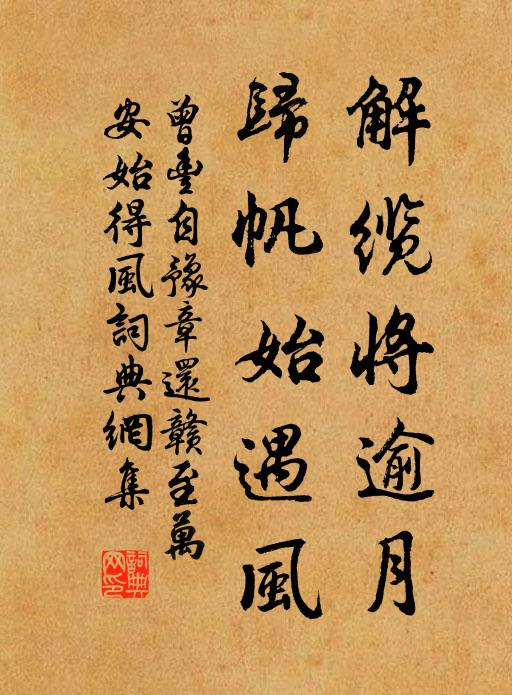 解缆将逾月
歸帆始遇風
曾豊自豫章還贛至萬
安始得風詞典網集
詞典
网印